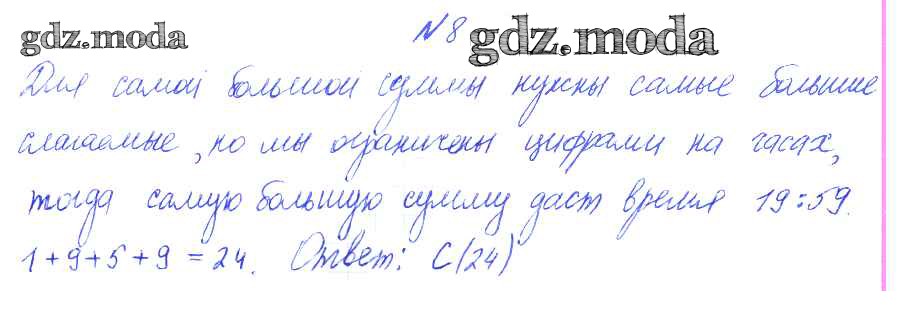 gdz.moda
№ 8 gdz.moda
Для самой большой суммы нужны самые большие
слагаемые, но мы ограничены цифрами на часах,
тогда самую большую сумму даст время 19:59.
1+9+5+9 = 24. Ответ: С(24)